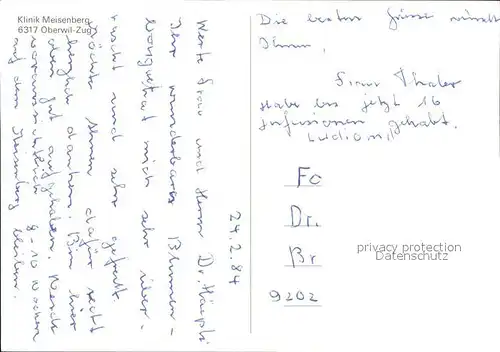 Klinik Meisenberg
6317 Oberwil-Zug
24.2.84
Werte Frau und Herrn Dr.
Ihr wunderbarer Blumen-
hat mich sehr über-
rascht und sehr gefreut.
Möchte Ihnen dafür recht
herzlich danken. Bin hier
gut aufgehoben. Werde
voraussichtlich 8-10 Wochen
auf dem Meisenberg bleiben.
Die besten Grüsse
Ihnen,
Thaler
Habe bis jetzt 16
Infusionen gehabt.
Ludiomil
Fa
Dr.
Br
9202
privacy protection
Datenschutz